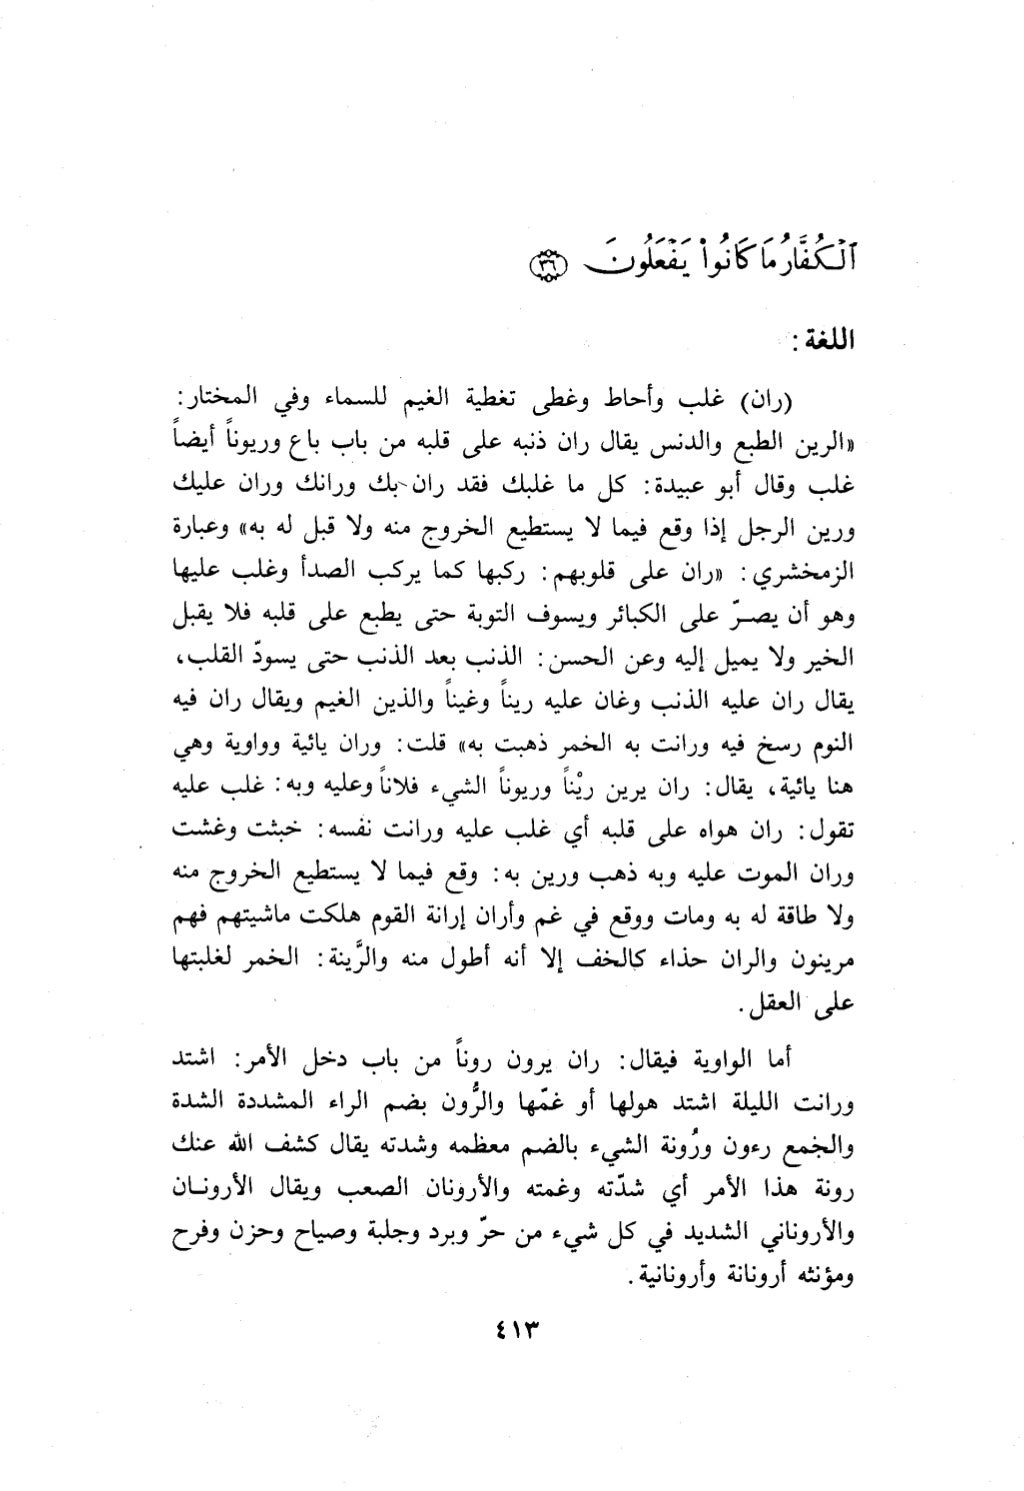 ٱلْكُفَّارُ مَا كَانُوا۟ يَفْعَلُونَ ﴿٣٦﴾
اللغة :
(ران) غلب وأحاط وغطى تغطية الغيم للسماء وفي المختار :
«الرين الطبع والدنس يقال ران ذنبه على قلبه من باب باع وريوناً أيضاً
غلب وقال أبو عبيدة : كل ما غلبك فقد ران بك ورانك وران عليك
ورين الرجل إذا وقع فيما لا يستطيع الخروج منه ولا قبل له به» وعبارة
الزمخشري : «ران على قلوبهم : ركبها كما يركب الصدأ وغلب عليها
وهو أن يصرّ على الكبائر ويسوف التوبة حتى يطبع على قلبه فلا يقبل
الخير ولا يميل إليه وعن الحسن : الذنب بعد الذنب حتى يسودّ القلب،
يقال ران عليه الذنب وغان عليه ريناً وغيناً والذين الغيم ويقال ران فيه
النوم رسخ فيه ورانت به الخمر ذهبت به» قلت : وران يائية وواوية وهي
هنا يائية، يقال : ران يرين ريْناً وريوناً الشيء فلاناً وعليه وبه : غلب عليه
تقول : ران هواه على قلبه أي غلب عليه ورانت نفسه : خبثت وغشت
وران الموت عليه وبه ذهب ورين به : وقع فيما لا يستطيع الخروج منه
ولا طاقة له به ومات ووقع في غم وأران إرانة القوم هلكت ماشيتهم فهم
مرينون والران حذاء كالخف إلا أنه أطول منه والرَّينة : الخمر لغلبتها
على العقل .
أما الواوية فيقال : ران يرون روناً من باب دخل الأمر : اشتد
ورانت الليلة اشتد هولها أو غمّها والرُّون بضم الراء المشددة الشدة
والجمع رءون ورُونة الشيء بالضم معظمه وشدته يقال كشف الله عنك
رونة هذا الأمر أي شدّته وغمته والأرونان الصعب ويقال الأرونان
والأروناني الشديد في كل شيء من حرّ وبرد وجلبة وصياح وحزن وفرح
ومؤنثه أرونانة وأرونانية .
٤١٣